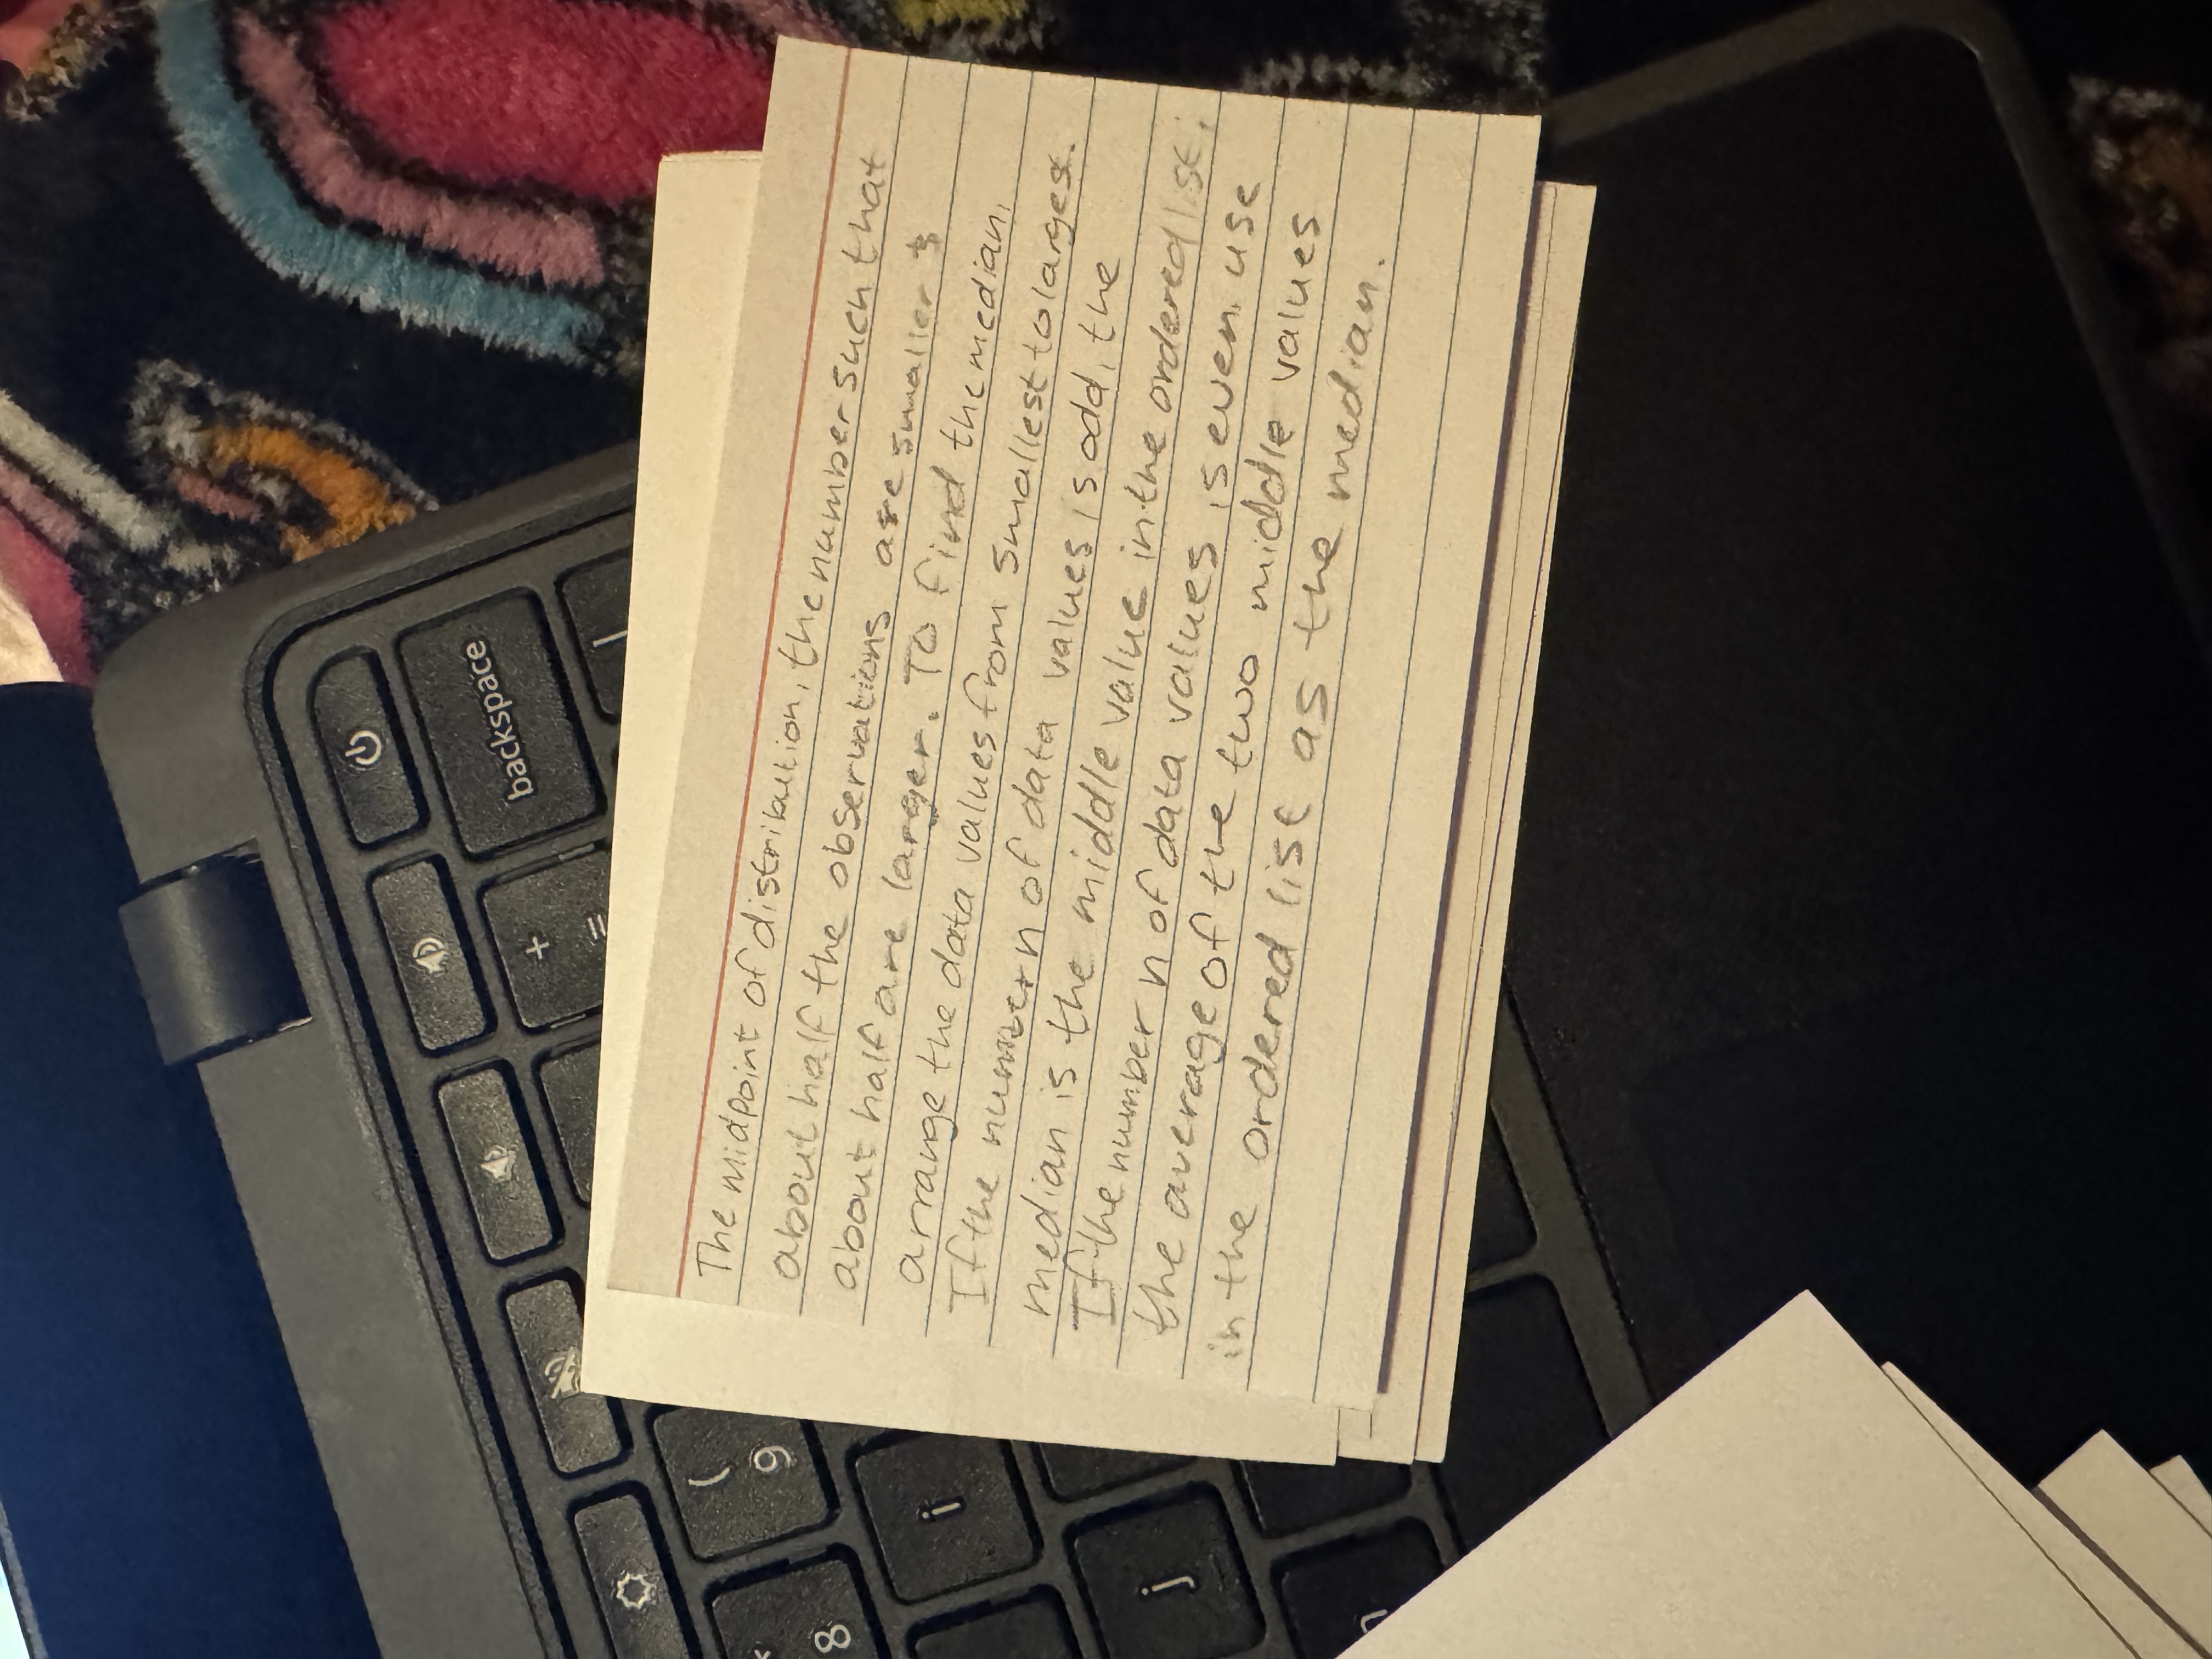 The midpoint of distribution, the number such that
about half the observations are smaller &
about half are larger. To find the median,
arrange the data values from smallest to largest.
If the number n of data values is odd, the
median is the middle value in the ordered list.
If the number n of data values is even, use
the average of the two middle values
in the ordered list as the median.
backspace
+
=
(
9
i
8
j